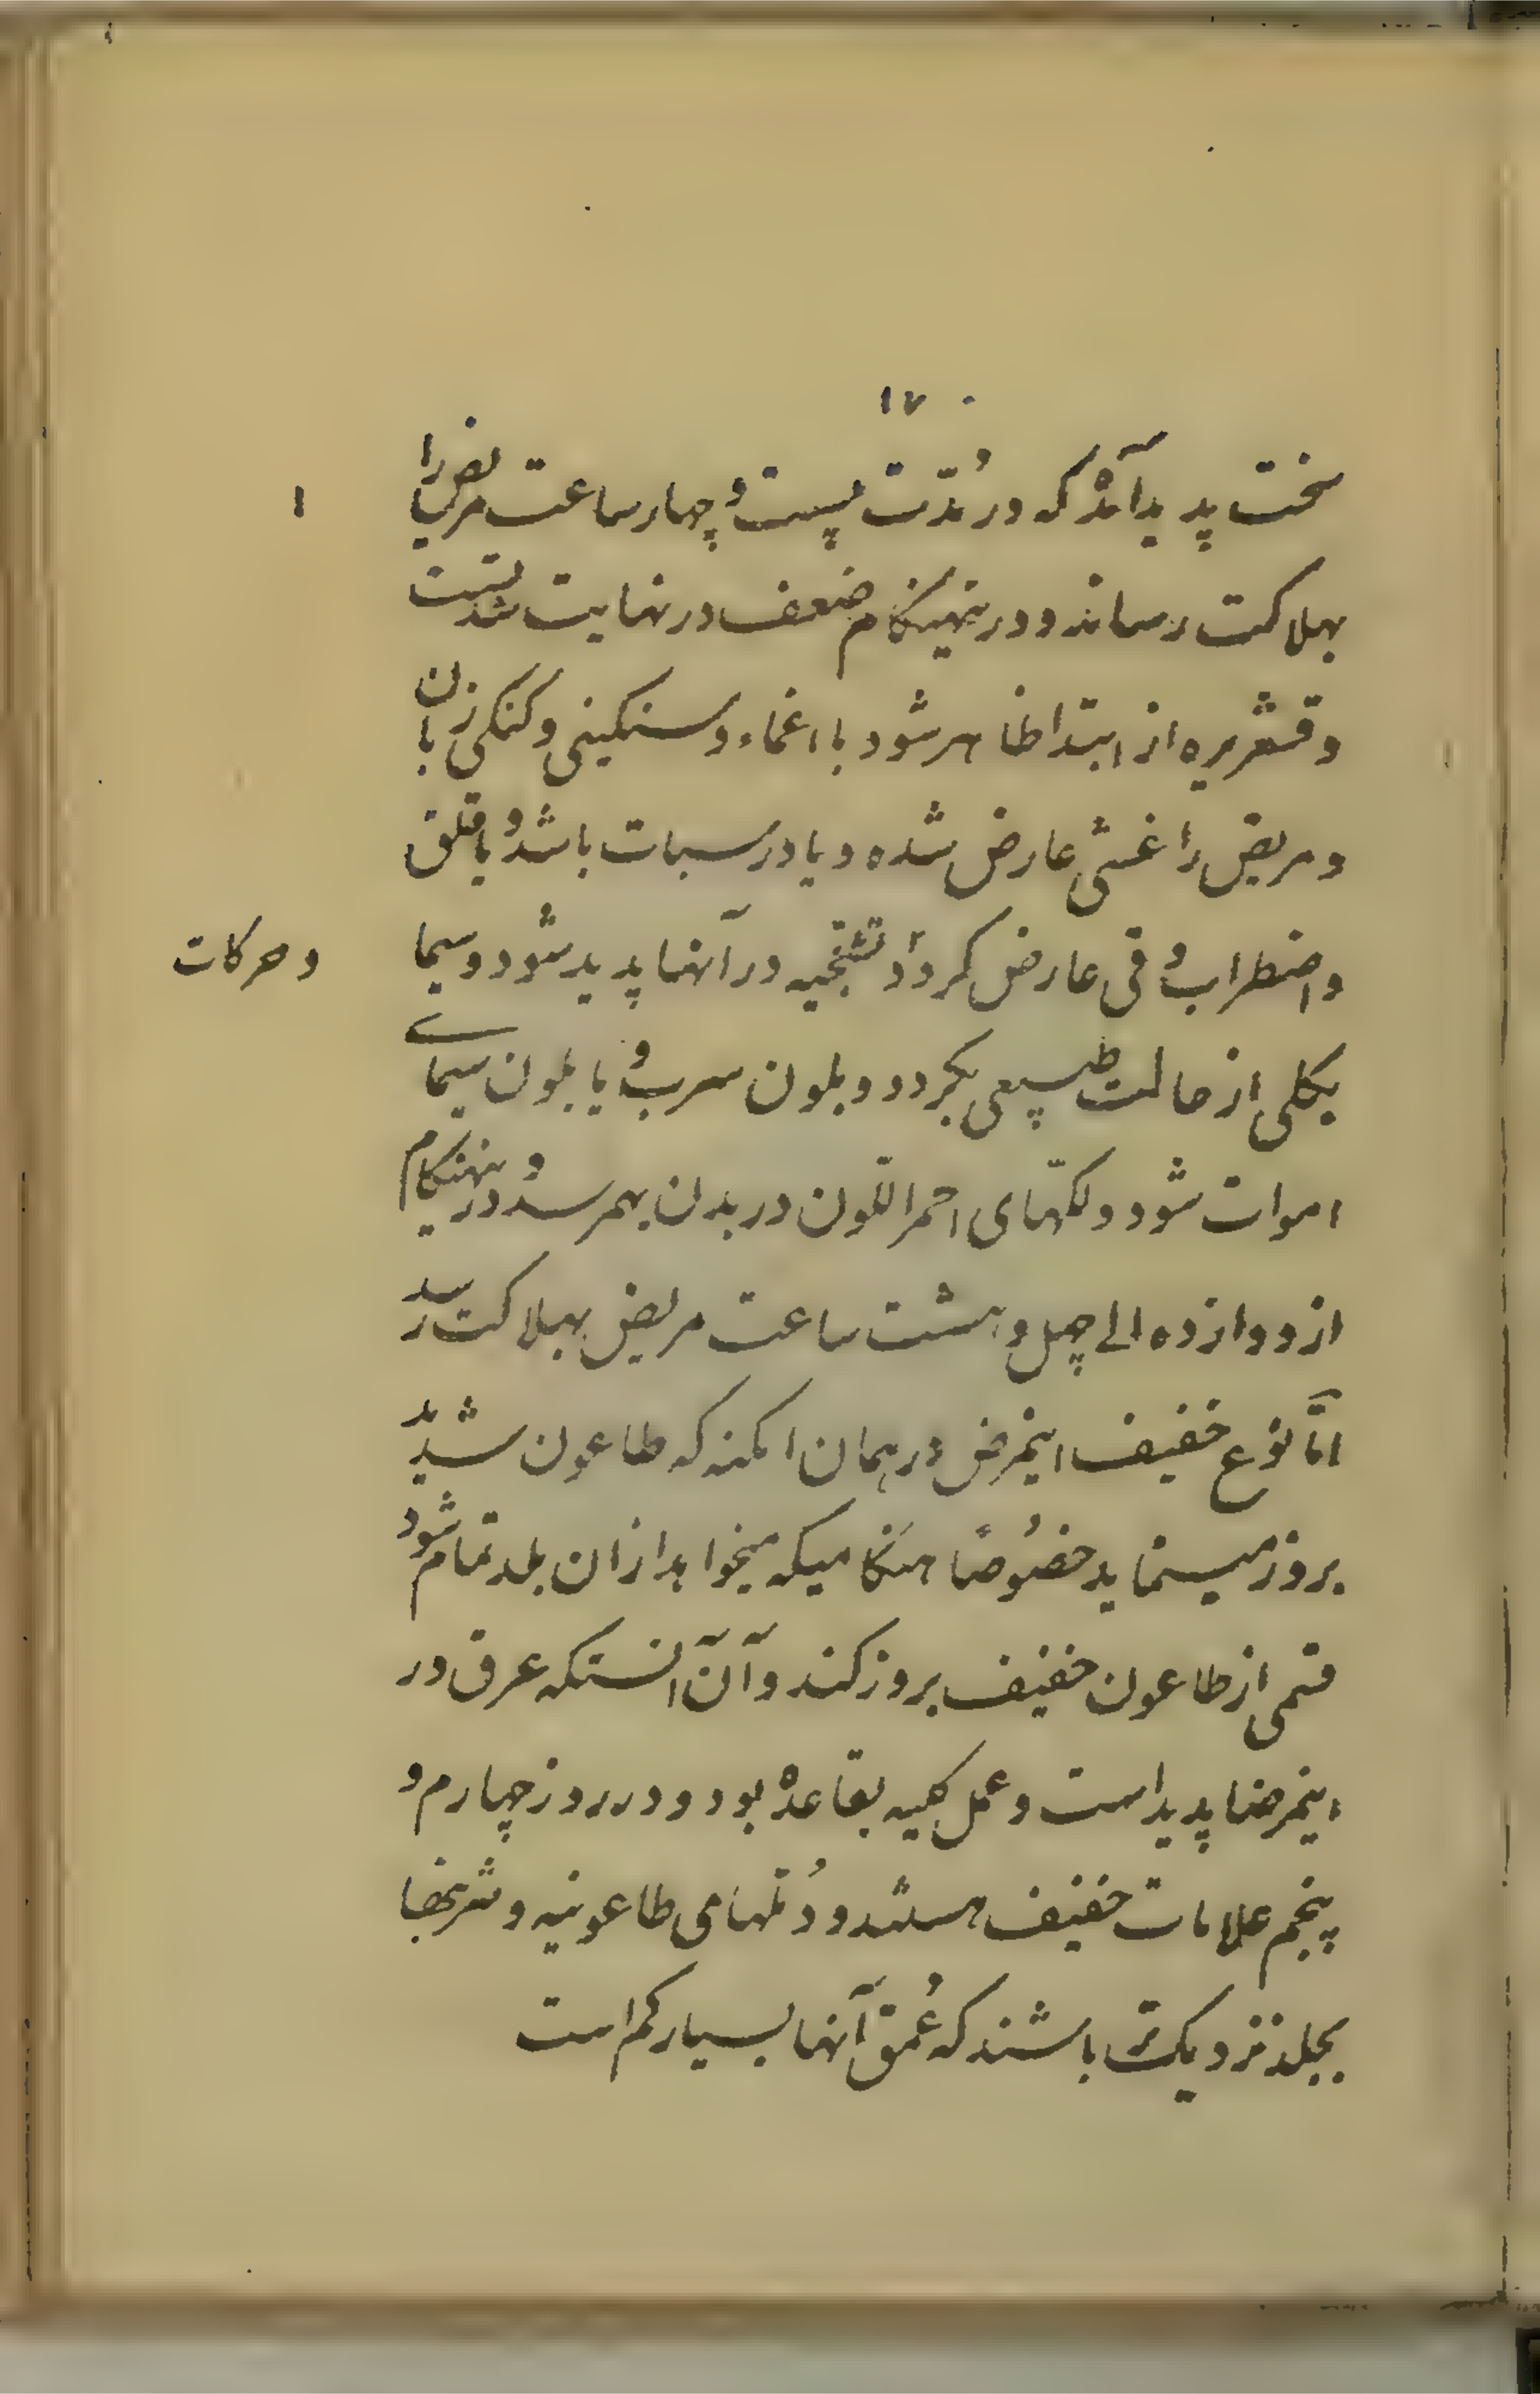 ۱۷
سخت پدید آمدکه در مُدّت بیست و چهار ساعت مریض را
بهلاکت رساند و درینهنکام ضعف در نهایت شدتست
و قشعریره از ابتدا ظاهر شود با اغماء و سنکینی و کنکی زبان
و مریض را غشی عارض شده و یا در سبات باشد و یا قلق
و اضطراب و قی عارض کردد و تشنجیه در آنها پدید شود و سیما
و حرکات
بکلی از حالت طبیعی بکردد و بلون سرب و یا بلون سیمای
اموات شود و لکهّای احمر اللّون در بدن بهمرسد و درینهنکام
از دوازده الی چهل و هشت ساعت مریض بهلاکت رسد
امّا نوع خفیف اینمرض در همان امکنه که طاعون شدید
بروز مینماید خصُوصاً هنکامیکه میخواهد ازان بلد تمام شود
قسمی از طاعون خفیف بروز کند و آن آنستکه عرق در
اینمرضا پدید است و عمل کلیه بقاعده بود و در روز چهارم و
پنجم علامات خفیف هستند و دُملهای طاعونیه و شربنها
بجلد نزدیک تر باشند که عُمق آنها بسیار کم است